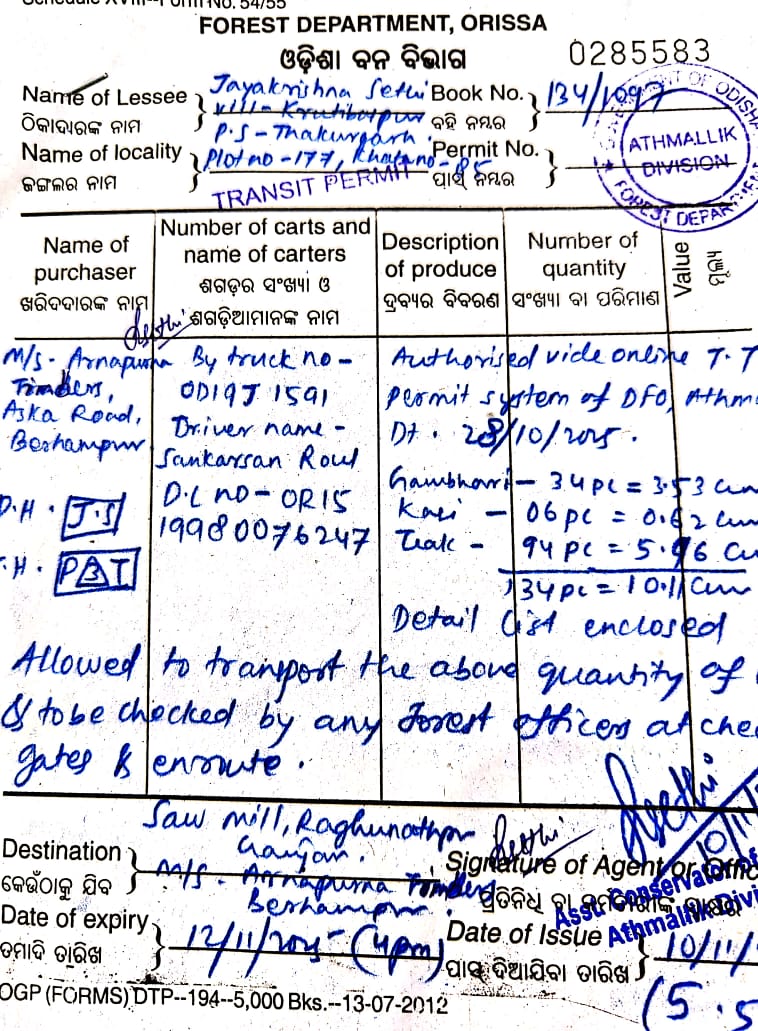 Schedule XVIII--Form No. 54/55
FOREST DEPARTMENT, ORISSA
ଓଡ଼ିଶା ବନ ବିଭାଗ
0285583
Name of Lessee } Jayakrishna Sethi
ଠିକାଦାରଙ୍କ ନାମ
Vill-
P.S - Thakurgarh.
Book No. } 134/1997
ବହି ନମ୍ବର
Name of locality } Plot no - 177, Khata no - 85
ଜଙ୍ଗଲର ନାମ
Permit No. }
ପାସ୍ ନମ୍ବର
TRANSIT PERMIT
ATHMALLIK
DIVISION
OF ODISHA
FOREST DEPARTMENT
Name of purchaser
ଖରିଦଦାରଙ୍କ ନାମ
Number of carts and name of carters
ଶଗଡ଼ର ସଂଖ୍ୟା ଓ ଶଗଡ଼ିଆମାନଙ୍କ ନାମ
Description of produce
ଦ୍ରବ୍ୟର ବିବରଣ
Number of quantity
ସଂଖ୍ୟା ବା ପରିମାଣ
Value
ମୂଲ୍ୟ
Sethi
M/s - Arnapurna
Timbers,
Aska Road,
Berhampur
D.H. J.S
.H. PBT
By truck no -
OD19J 1591
Driver name -
Sankarsan Rout
D.L no - OR15
19980076247
Authorised vide online T.T
Permit system of DFO, Athm
Dt. 28/10/2025.
Gambhari - 34 pc = 3.53 cum
Kasi - 06 pc = 0.62 cum
Teak - 94 pc = 5.96 cu
134 pc = 10.11 cum
Detail list enclosed
Allowed to transport the above quantity of
& to be checked by any forest officers at che
gates & enroute.
Sethi
10/11/
Saw mill, Raghunathpur
Ganjam.
Destination } M/s - Arnapurna Timbers
କେଉଁଠାକୁ ଯିବ
Berhampur.
Sethi
Signature of Agent or Offic
ପ୍ରତିନିଧି ବା କର୍ମଚାରୀଙ୍କ ସ୍ୱାକ୍ଷର
Asst Conservator of
Athmallik Divi
Date of expiry } 12/11/2025 (4pm)
ତମାଦି ତାରିଖ
Date of Issue } 10/11/
ପାସ୍ ଦିଆଯିବା ତାରିଖ
(5.5
OGP (FORMS) DTP--194--5,000 Bks.--13-07-2012